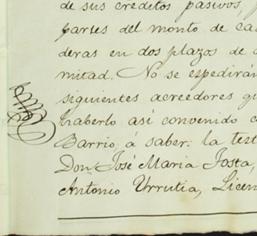 de sus creditos pasivos, p
partes del monto de ca
deras en dos plazos de
mitad. No se expedirán
siguientes acreedores qu
haberlo así convenido c
Barrio, á saber: la test
Don José Maria Josta,
Antonio Urrutia, Licen